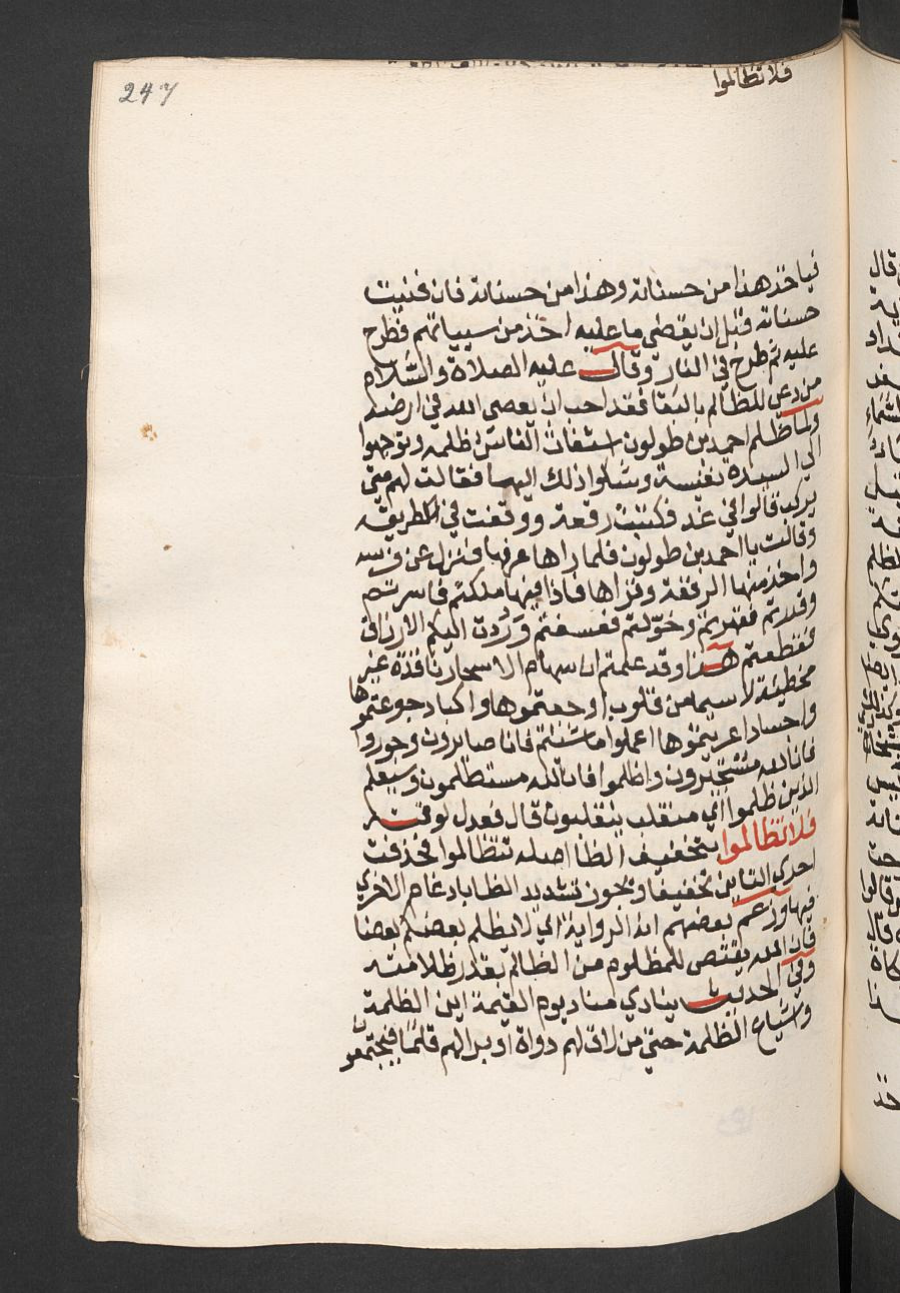 247
فلا تظالموا
فياخذ هذا من حسناته وهذا من حسناته فان فنيت
حسناته قبل ان يقضي ما عليه اخذ من سيياتهم فطرح
عليه ثم طرح في النار وقال عليه الصلاة والسلام
من دعى للظالم بالبقا فقد احب ان يعصى الله في ارضه
ولما ظلم احمد بن طولون استغاث الناس من ظلمه وتوجهوا
الى السيدة نفيسة وشكوا ذلك اليها فقالت لهم متى
يركب قالوا في غد فكتبت رقعة ووقفت في الطريقه
وقالت يا احمد بن طولون فلما راها عرفها فنزل عن فرسه
واخذ منها الرقعة وقراها فاذا فيها ملكتم فاسرتم
وقدرتم فقهرتم وخولتم ففسقتم وردت اليكم الارزاق
فقطعتم هذا وقد علمتم ان سهام الاسحار نافذة غير
مخطيئة لا سيما من قلوب اوجعتموها واكباد جوعتموها
واجسادا عريتموها اعملوا ما شئتم فانا صابرون وجوروا
فانا بالله مستجيرون واظلموا فانا لله متظلمون وسيعلم
الذين ظلموا اي منقلب ينقلبون قال فعدل لوقته
فلا تظالموا بتخفيف الظا اصله تتظالموا فحذفت
احدي التاين تخفيفا ويجوز تشديد الظا بادغام الاخري
فيها وزعم بعضهم انه الرواية اي لا يظلم بعضكم بعضا
فان الله يقتص للمظلوم من الظالم بقدر ظلامته
وفي الحديث ينادي مناد يوم القيمة اين الظلمة
واشياع الظلمة حتى من لاق لهم دواة او برا لهم قلما فيجتمعون